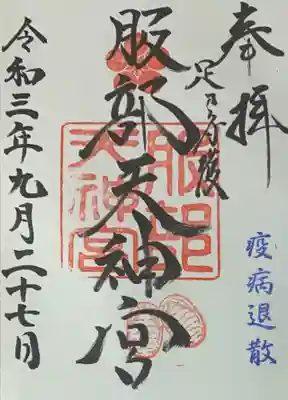 奉拝
足乃守護
疫病退散
服部天神宮
服部
天神宮
令和三年九月二十七日